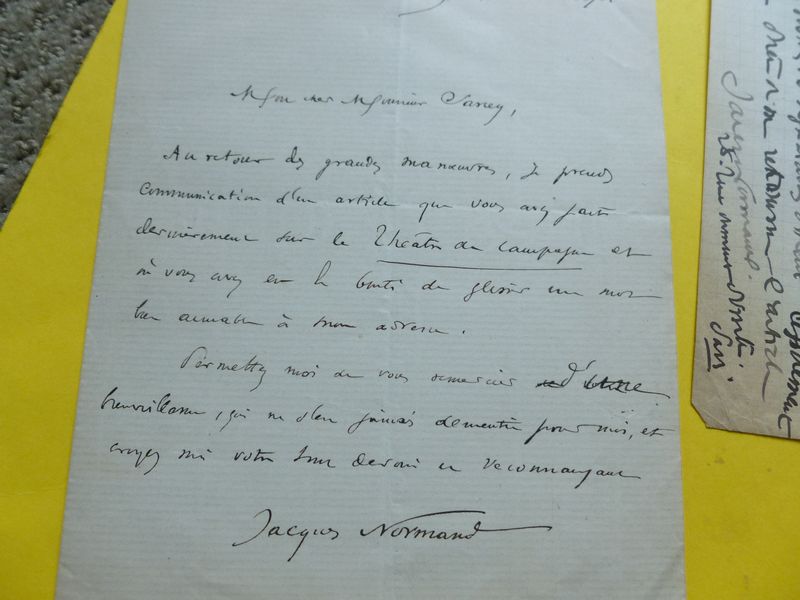 Mon cher Monsieur Sarcey,
Au retour des grandes manœuvres, je prends
communication d'un article que vous avez fait
dernièrement sur le Théâtre de Campagne et
où vous avez eu la bonté de glisser un mot
bien aimable à mon adresse.
Permettez moi de vous remercier d'une
bienveillance, qui ne s'est jamais démentie pour moi, et
croyez moi votre tout dévoué et reconnaissant
Jacques Normand
retourner l'article
Jacques Normand.
Paris.